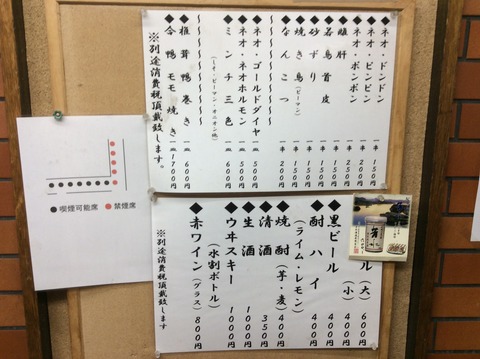 ◆ネオ・ドンドン 一串 150円
◆ネオ・ピンピン 一串 150円
◆ネオ・ボンボン 一串 200円
◆雌肝 一串 250円
◆若鳥首皮 一串 150円
◆砂ずり 一串 150円
◆焼き鳥(ピーマン) 一串 150円
◆なんこつ 一串 200円
◆ネオ・ゴールドダイヤ 一皿 500円
◆ネオ・ネオホルモン 一皿 500円
◆ミンチ三色 一皿 600円
◆椎茸鴨巻き 一皿 600円
◆合鴨モモ焼き 一皿 1700円
※別途消費税頂戴致します。
ル(大) 600円
(小) 400円
◆黒ビール 400円
◆酎ハイ 400円
(ライム・レモン)
◆焼酎(芋・麦) 400円
◆清酒 350円
◆生酒 1000円
◆ウヰスキー 1000円
(水割ボトル)
◆赤ワイン(グラス) 800円
※別途消費税頂戴致します
●喫煙可能席 ●禁煙席